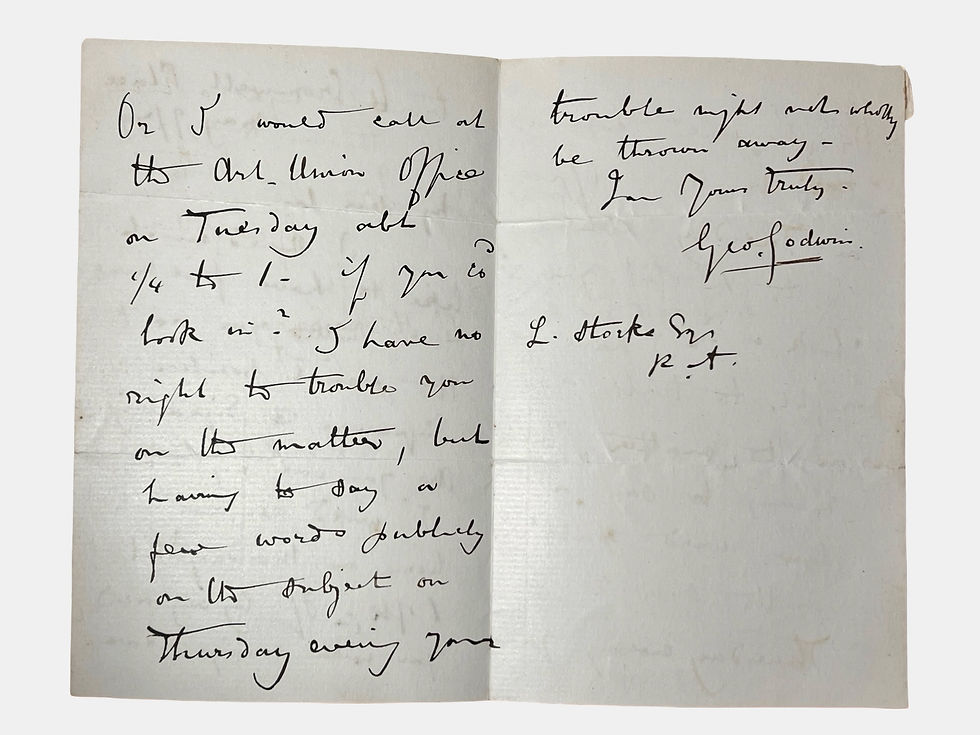 Or I would call at
the Art-Union Office
on Tuesday abt
1/4 to 1 - if you cd
look in? I have no
right to trouble you
on the matter, but
having to say a
few words publicly
on the subject on
Thursday evening your
trouble might not wholly
be thrown away -
I am Yours truly.
Geo. Godwin.
L. Stocks Esq
R.A.